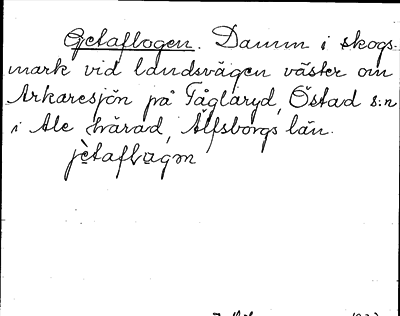 Getaflogen. Damm i skogs-
mark vid landsvägen väster om
Arkaresjön på Fåglaryd, Östad s:n
i Ale härad, Älfsborgs län.
jètaflogɘn